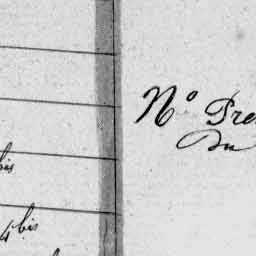 bis
4 bis
N° Pre
Du